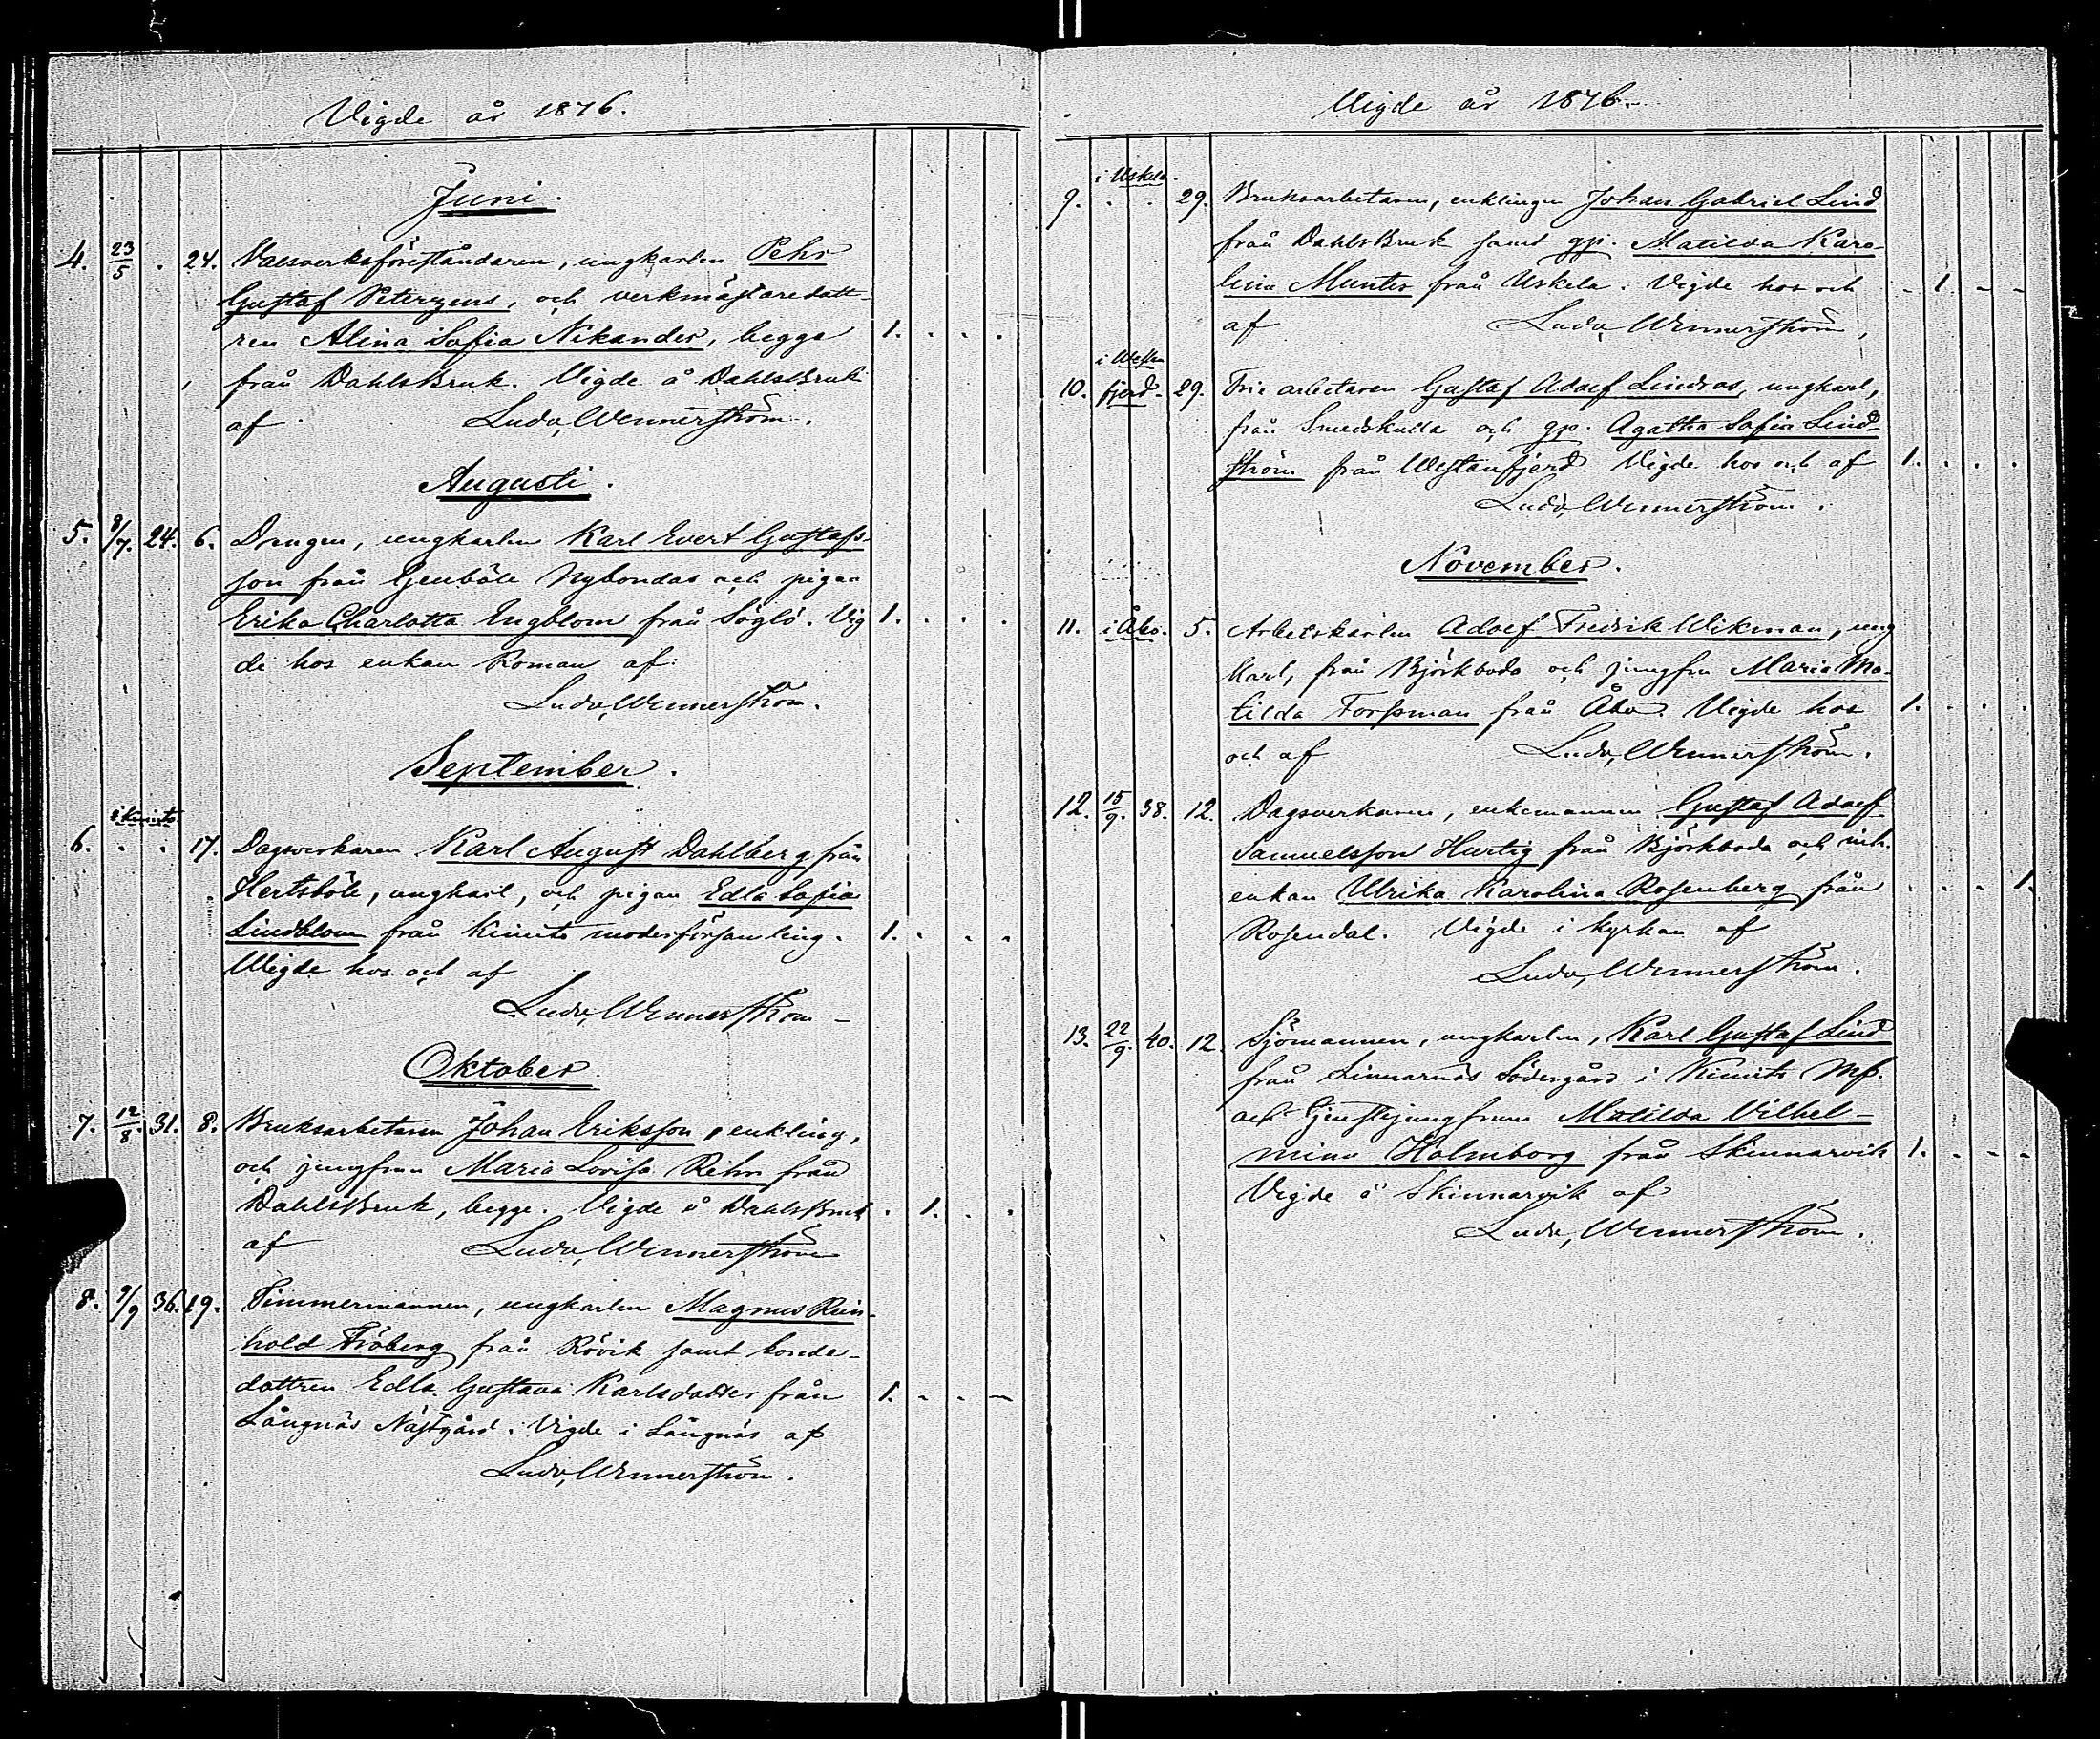 Vigde år 1876.
Juni.
4. 23/5 . 24. Valsverksföreståndaren, ungkarlen Pehr
Gustaf Peterzens, och verkmästaredott-
ren Alina Sofia Nikander, begge 1. . . .
från DahlsBruk. Vigde å DahlsBruk
af Ludv, Wennerström.
Augusti.
5. 9/7. 24. 6. Drengen, ungkarlen Karl Evert Gustafs-
son från Genböle Nybondas och pigan
Erika Charlotta Engblom från Söglö. Vig 1. . . .
de hos enkan Roman af
Ludv, Wennerström.
September.
i Kimito
6. . . 17. Dagsverkaren Karl August Dahlberg från
Hertsböle, ungkarl, och pigan Edla Sofia
Lindblom från Kimito moderförsamling. 1. . . .
Wigde hos och af
Ludv, Wennerström
Oktober.
7. 12/8. 31. 8. Bruksarbetaren Johan Eriksson, enkling,
och jungfrun Maria Lovisa Rehn från
DahlsBruk, begge. Vigde å DahlsBruk . 1. . .
af Ludv, Wennerström
8. 9/9 36. 19. Timmermannen, ungkarlen Magnus Rein-
hold Fröberg från Rövik samt bonde-
dottren Edla Gustava Karlsdotter från 1. - . -
Långnäs Nästgård. Vigde i Långnäs af
Ludv, Wennerström.
Vigde år 1876.
i Uskela.
9. . . 29. Bruksarbetaren, enklingen Johan Gabriel Lind
från DahlsBruk samt gp. Matilda Karo-
lina Munter från Uskela. Vigde hos och - 1. - -
af Ludv, Wennerström,
i Westan
10. fjerd. 29. Frie arbetaren Gustaf Adolf Lindros, ungkarl,
från Smedskulla och gp. Agatha Sofia Lind-
ström från Westanfjerd. Vigde hos och af 1. . . .
Ludv, Wennerström.
November.
11. i Åbo. 5. Arbetskarlen Adolf Fredrik Wikman, ung
karl, från Björkboda och jungfru Maria Ma-
tilda Forssman från Åbo. Vigde hos 1. . . .
och af Ludv, Wennerström.
12. 15/9. 38. 12. Dagsverkaren, enkemannen Gustaf Adolf
Samuelsson Hurtig från Björkboda och inh.
enkan Ulrika Karolina Rosenberg från . . . 1.
Rosendal. Vigde i kyrkan af
Ludv, Wennerström.
13. 22/9. 40. 12. Sjömannen, ungkarlen, Karl Gustaf Lind
från Linnarnäs Södergård i Kimito Mf.
och tjenstejungfrun Matilda Vilhel-
mina Holmborg från Skinnarvik 1. . - -
Vigde å Skinnarvik af
Ludv, Wennerström.